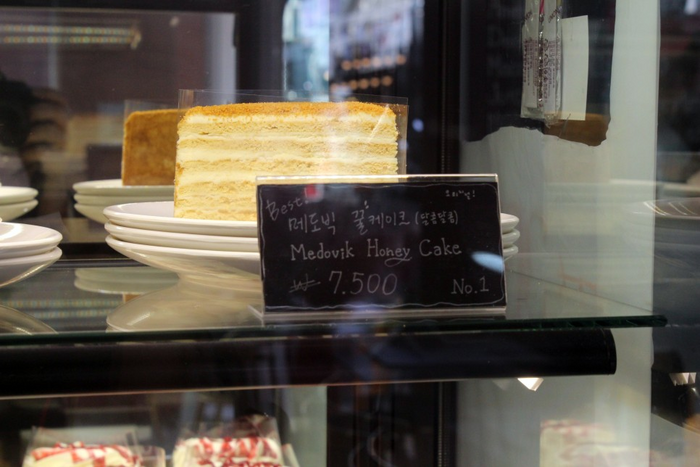 Best!
메도빅 꿀케이크 (달콤달콤)
Medovik Honey Cake
₩ 7.500
No.1